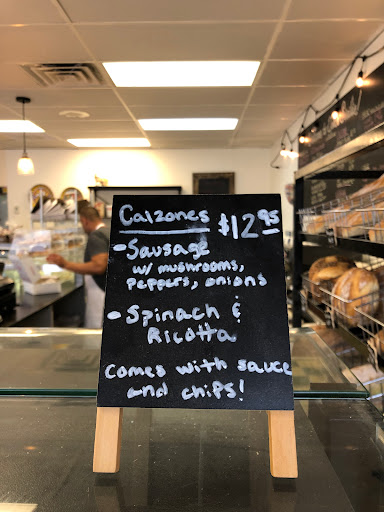 Calzones $12.95
- Sausage
w/ mushrooms,
peppers, onions
- Spinach &
Ricotta
comes with sauce
and chips!